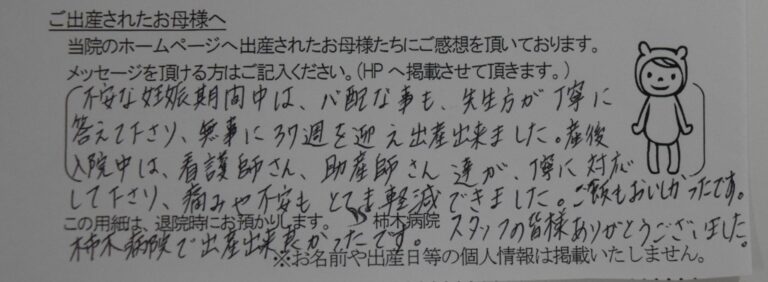 ご出産されたお母様へ
当院のホームページへ出産されたお母様たちにご感想を頂いております。
メッセージを頂ける方はご記入ください。(HPへ掲載させて頂きます。)
不安な妊娠期間中は、心配な事も、先生方が丁寧に
答えて下さり、無事に37週を迎え出産出来ました。産後
入院中は、看護師さん、助産師さん達が、丁寧に対応
して下さり、痛みや不安もとても軽減できました。ご飯もおいしかったです。
この用紙は、退院時にお預かりします。 柿木病院 スタッフの皆様ありがとうございました。
柿木病院で出産出来良かったです。
※お名前や出産日等の個人情報は掲載いたしません。